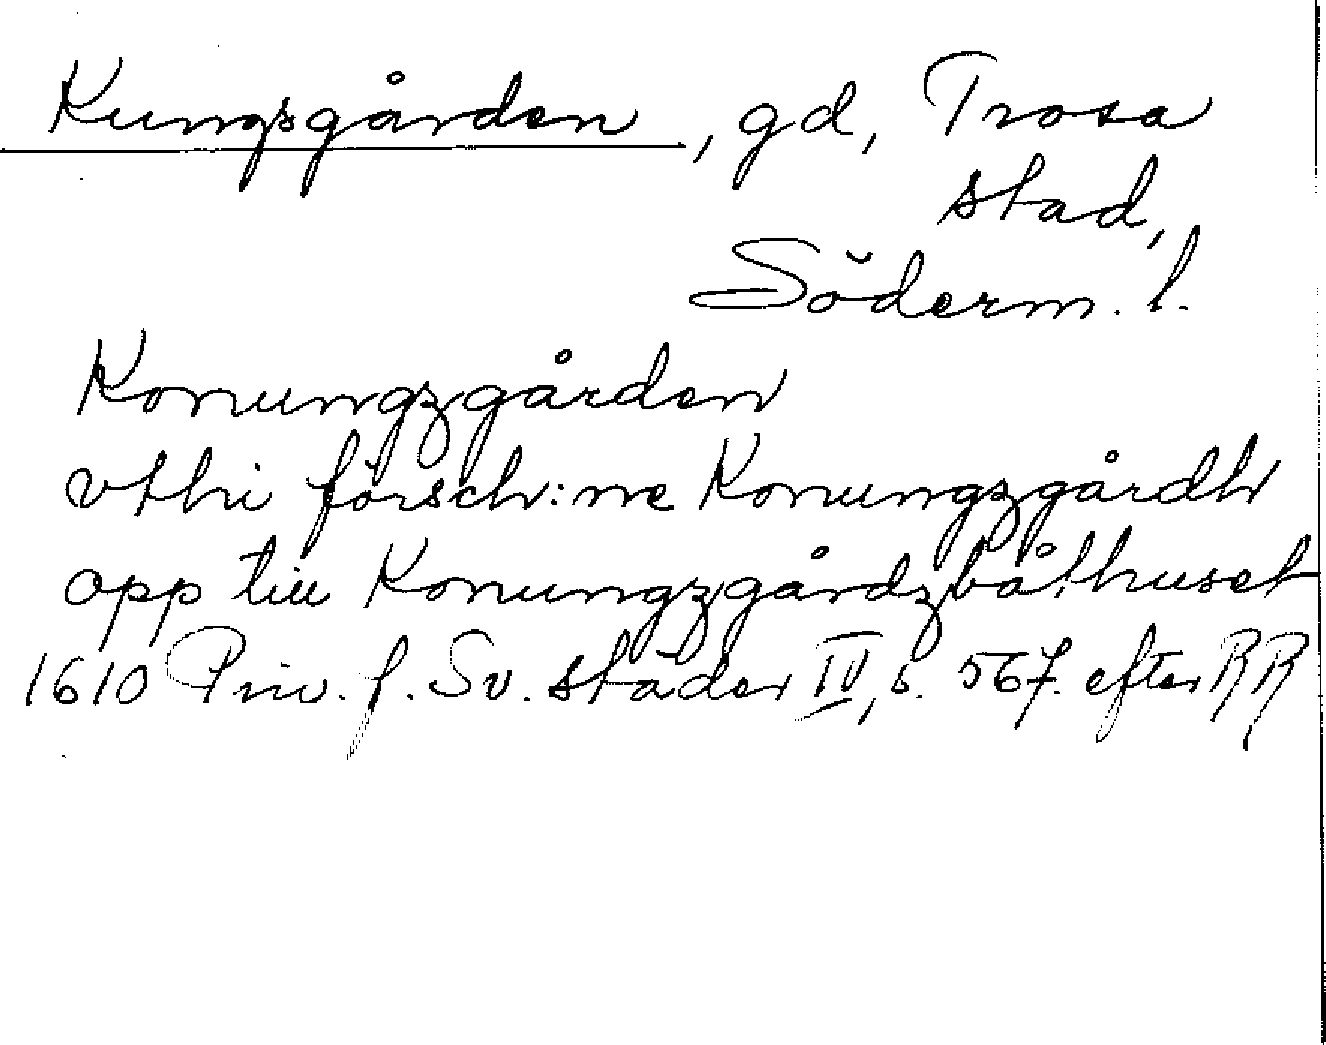 Kungsgården, gd, Trosa
stad,
Söderm. l.
Konungzgården
vthi försch:ne Konungzgårdh
opp till Konungzgårdzbåthuset
1610 Priv. f. Sv. städer IV, s. 567. efter RR